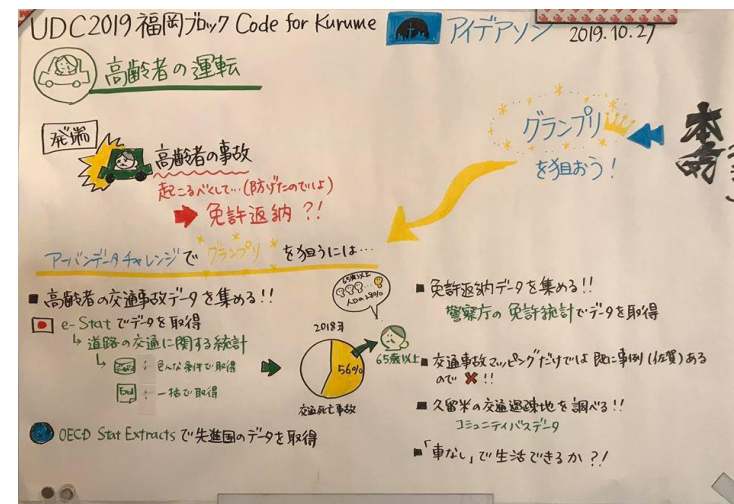 UDC2019 福岡ブロック Code for Kurume アイデアソン 2019.10.27
高齢者の運転
グランプリ
を狙おう!
本気
発端
高齢者の事故
起こるべくして…(防げたのでは)
免許返納?!
アーバンデータチャレンジでグランプリを狙うには…
■高齢者の交通事故データを集める!!
e-Statでデータを取得
道路の交通に関する統計
:色んな条件で取得
:一括で取得
OECD Stat Extractsで先進国のデータを取得
65歳以上
人口の28%
2018年
56%
65歳以上
交通死亡事故
■免許返納データを集める!!
警察庁の免許統計でデータを取得
■交通事故マッピングだけでは既に事例(佐賀)ある
ので✖!!
■久留米の交通過疎地を調べる!!
コミュニティバスデータ
■「車なし」で生活できるか?!